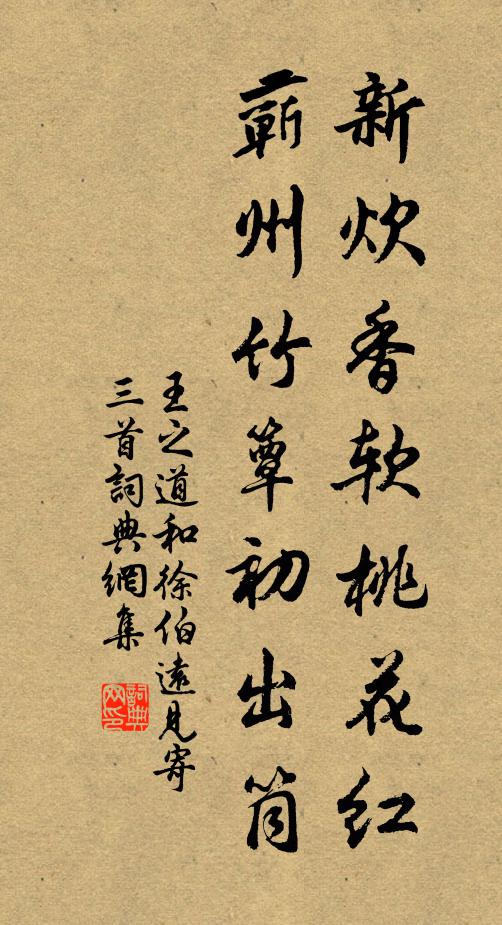 新炊香软桃花红
蕲州竹簟初出筒
王之道和徐伯遠見寄
三首詞典網集
詞典
网印